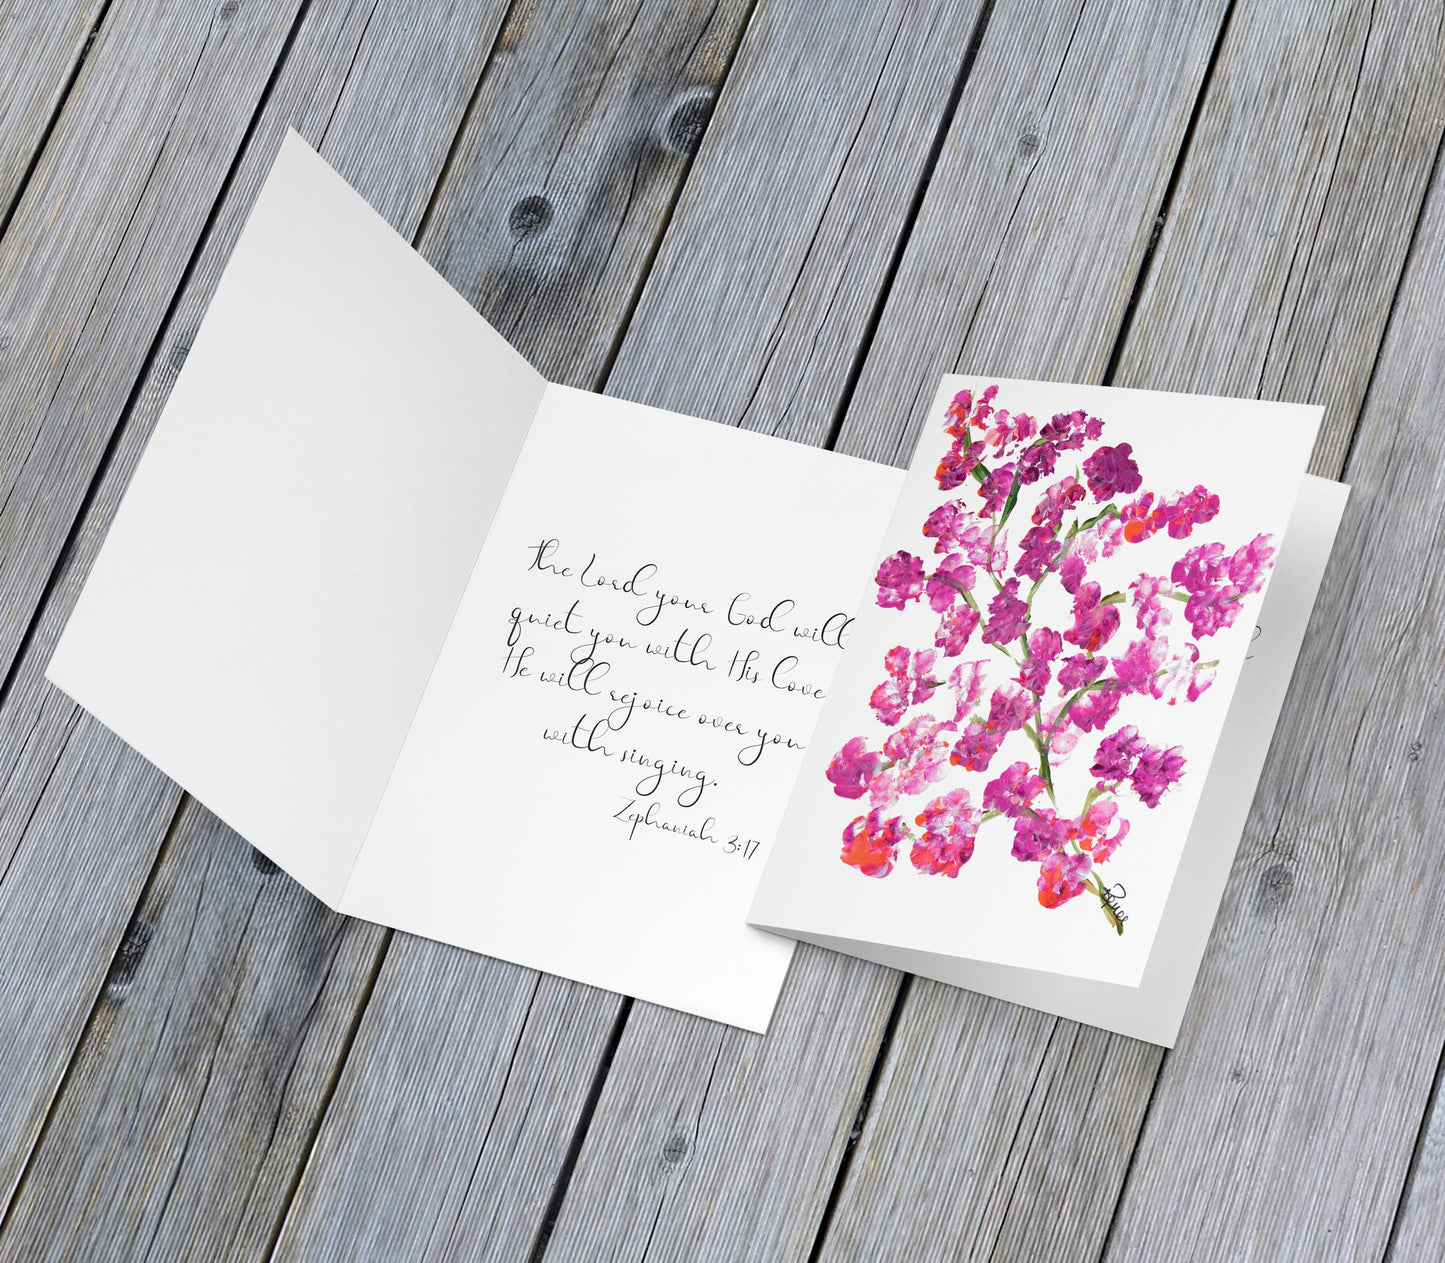 the Lord your God will
quiet you with His love
He will rejoice over you
with singing.
Zephaniah 3:17
Renee